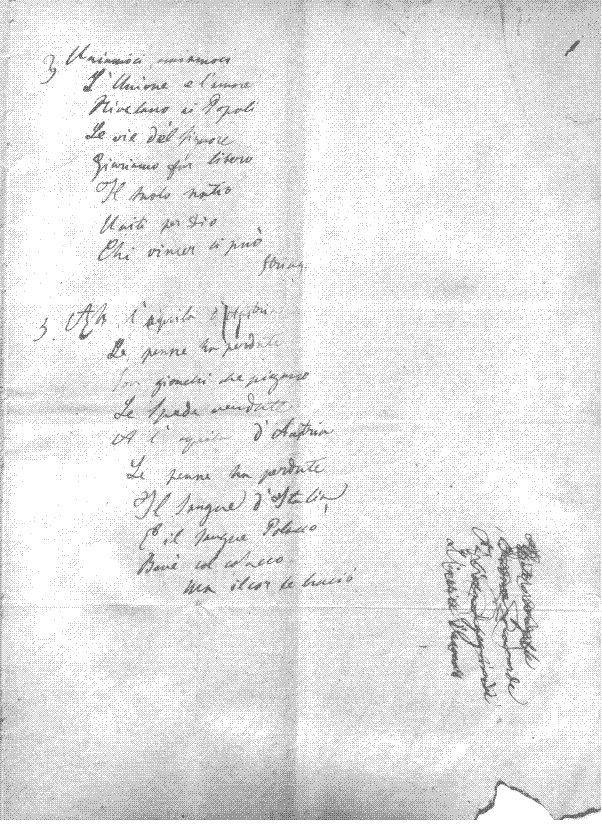 3 Uniamoci, uniamoci
L'Unione e l'amore
Rivelano ai Popoli
Le vie del Signore
Giuriamo far libero
Il suolo natio
Uniti per Dio
Chi vincer ci può
String.
3. Ah l'aquila d'Austria
Le penne ha perdute
Son giunchi che piegano
Le Spade vendute
A l'aquila d'Austria
Le penne ha perdute
Il Sangue d'Italia
E il sangue Polacco
Bevé col cosacco
Ma il cor le bruciò